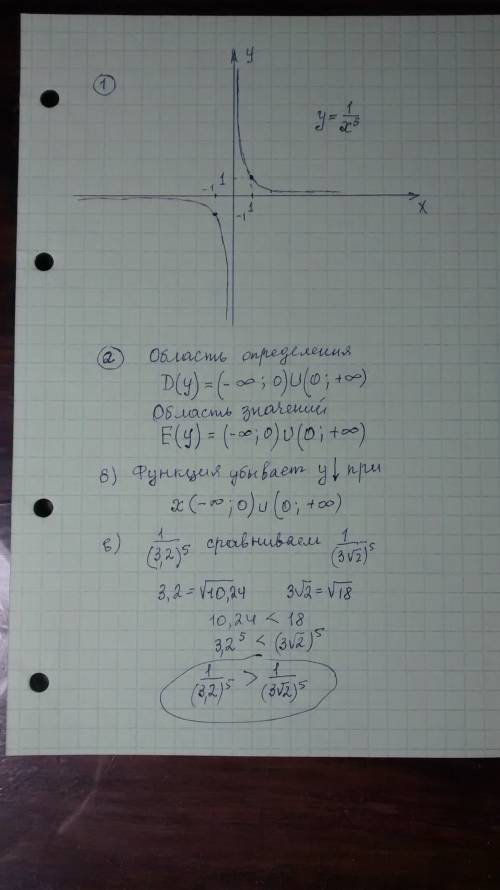 1
y
y = 1/x⁵
-1 1
1 x
-1
а) Область определения
D(y) = (-∞; 0)∪(0; +∞)
Область значений
E(y) = (-∞; 0)∪(0; +∞)
б) Функция убывает y↓ при
x (-∞; 0)∪(0; +∞)
в) 1/(3,2)⁵ сравниваем 1/(3√2)⁵
3,2 = √10,24 3√2 = √18
10,24 < 18
3,2⁵ < (3√2)⁵
1/(3,2)⁵ > 1/(3√2)⁵